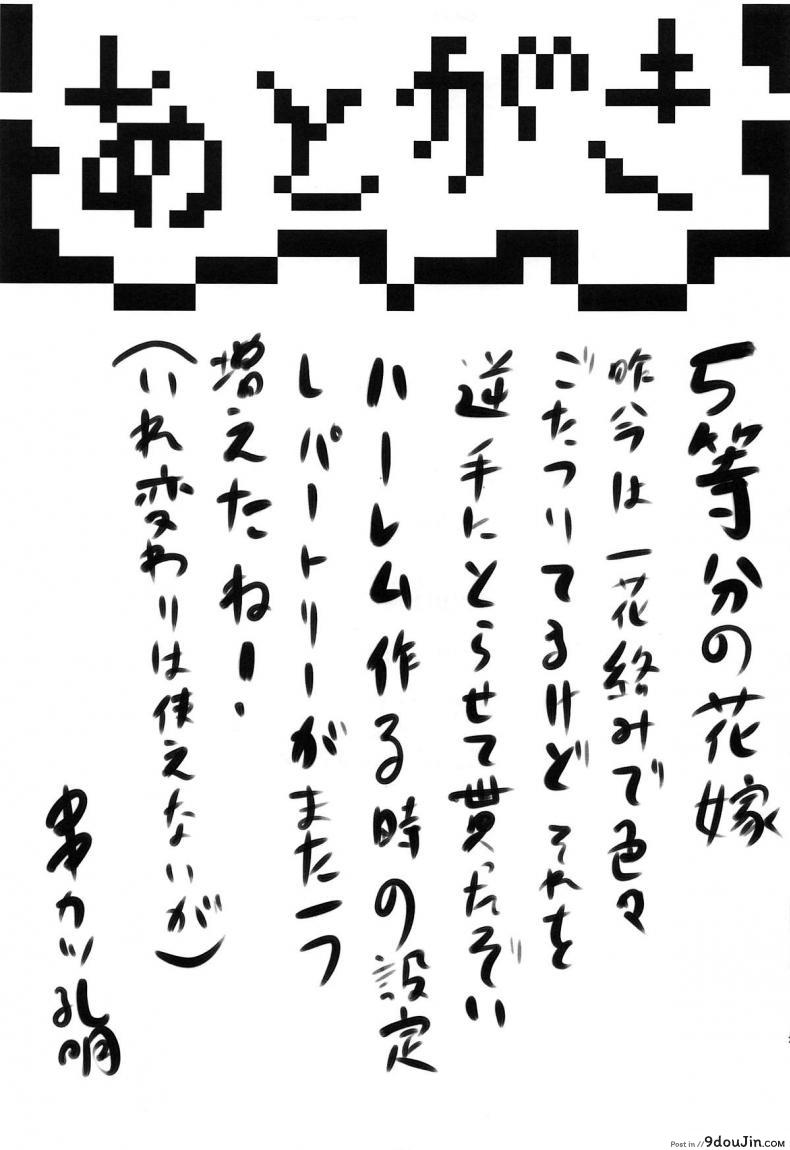 あとがき
5等分の花嫁
昨今は一花絡みで色々
ごたついてるけど それを
逆手にとらせて貰ったぞい
ハーレム作る時の設定
レパートリーがまた一つ
増えたね！
（いれ変わりは使えないが）
串カツ孔明
Post in //9douJin.COM